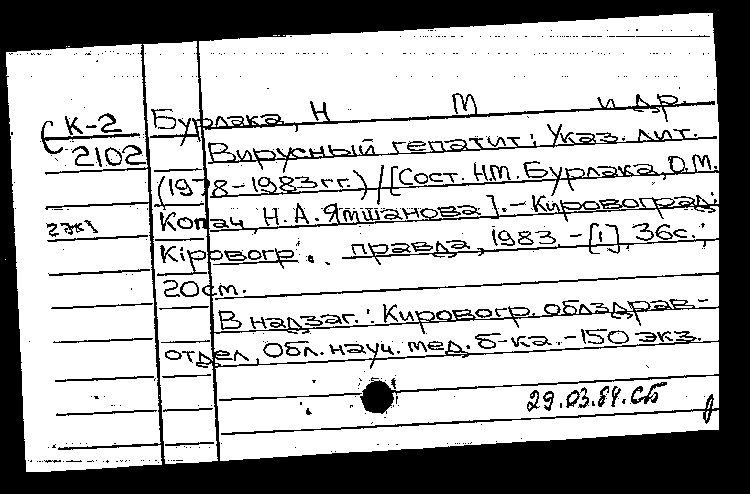 К-2 Бурлака, Н М и др.
2102 Вирусный гепатит: Указ. лит.
(1978-1983гг.)/[Сост. Н.М. Бурлака, О.М.
Копач, Н.А. Ямшанова].-Кировоград:
Кіровогр. правда, 1983.-[1], 36с.;
20см.
В надзаг.: Кировогр. облздрав-
отдел, Обл. науч. мед. б-ка.-150 экз.
29.03.84.СБ